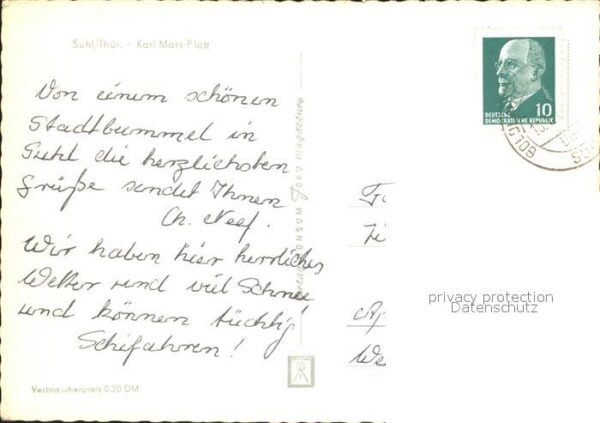 Suhl/Thür. - Karl-Marx-Platz
Von einem schönen
Stadtbummel in
Suhl die herzlichsten
Grüße sendet Ihnen
Ch. Neef.
Wir haben hier herrliches
Wetter und viel Schnee
und können tüchtig
Schifahren!
Verbraucherpreis 0,20 DM
KONSUM FOTO Magdeburg
10
DEUTSCHE
DEMOKRATISCHE REPUBLIK
privacy protection
Datenschutz